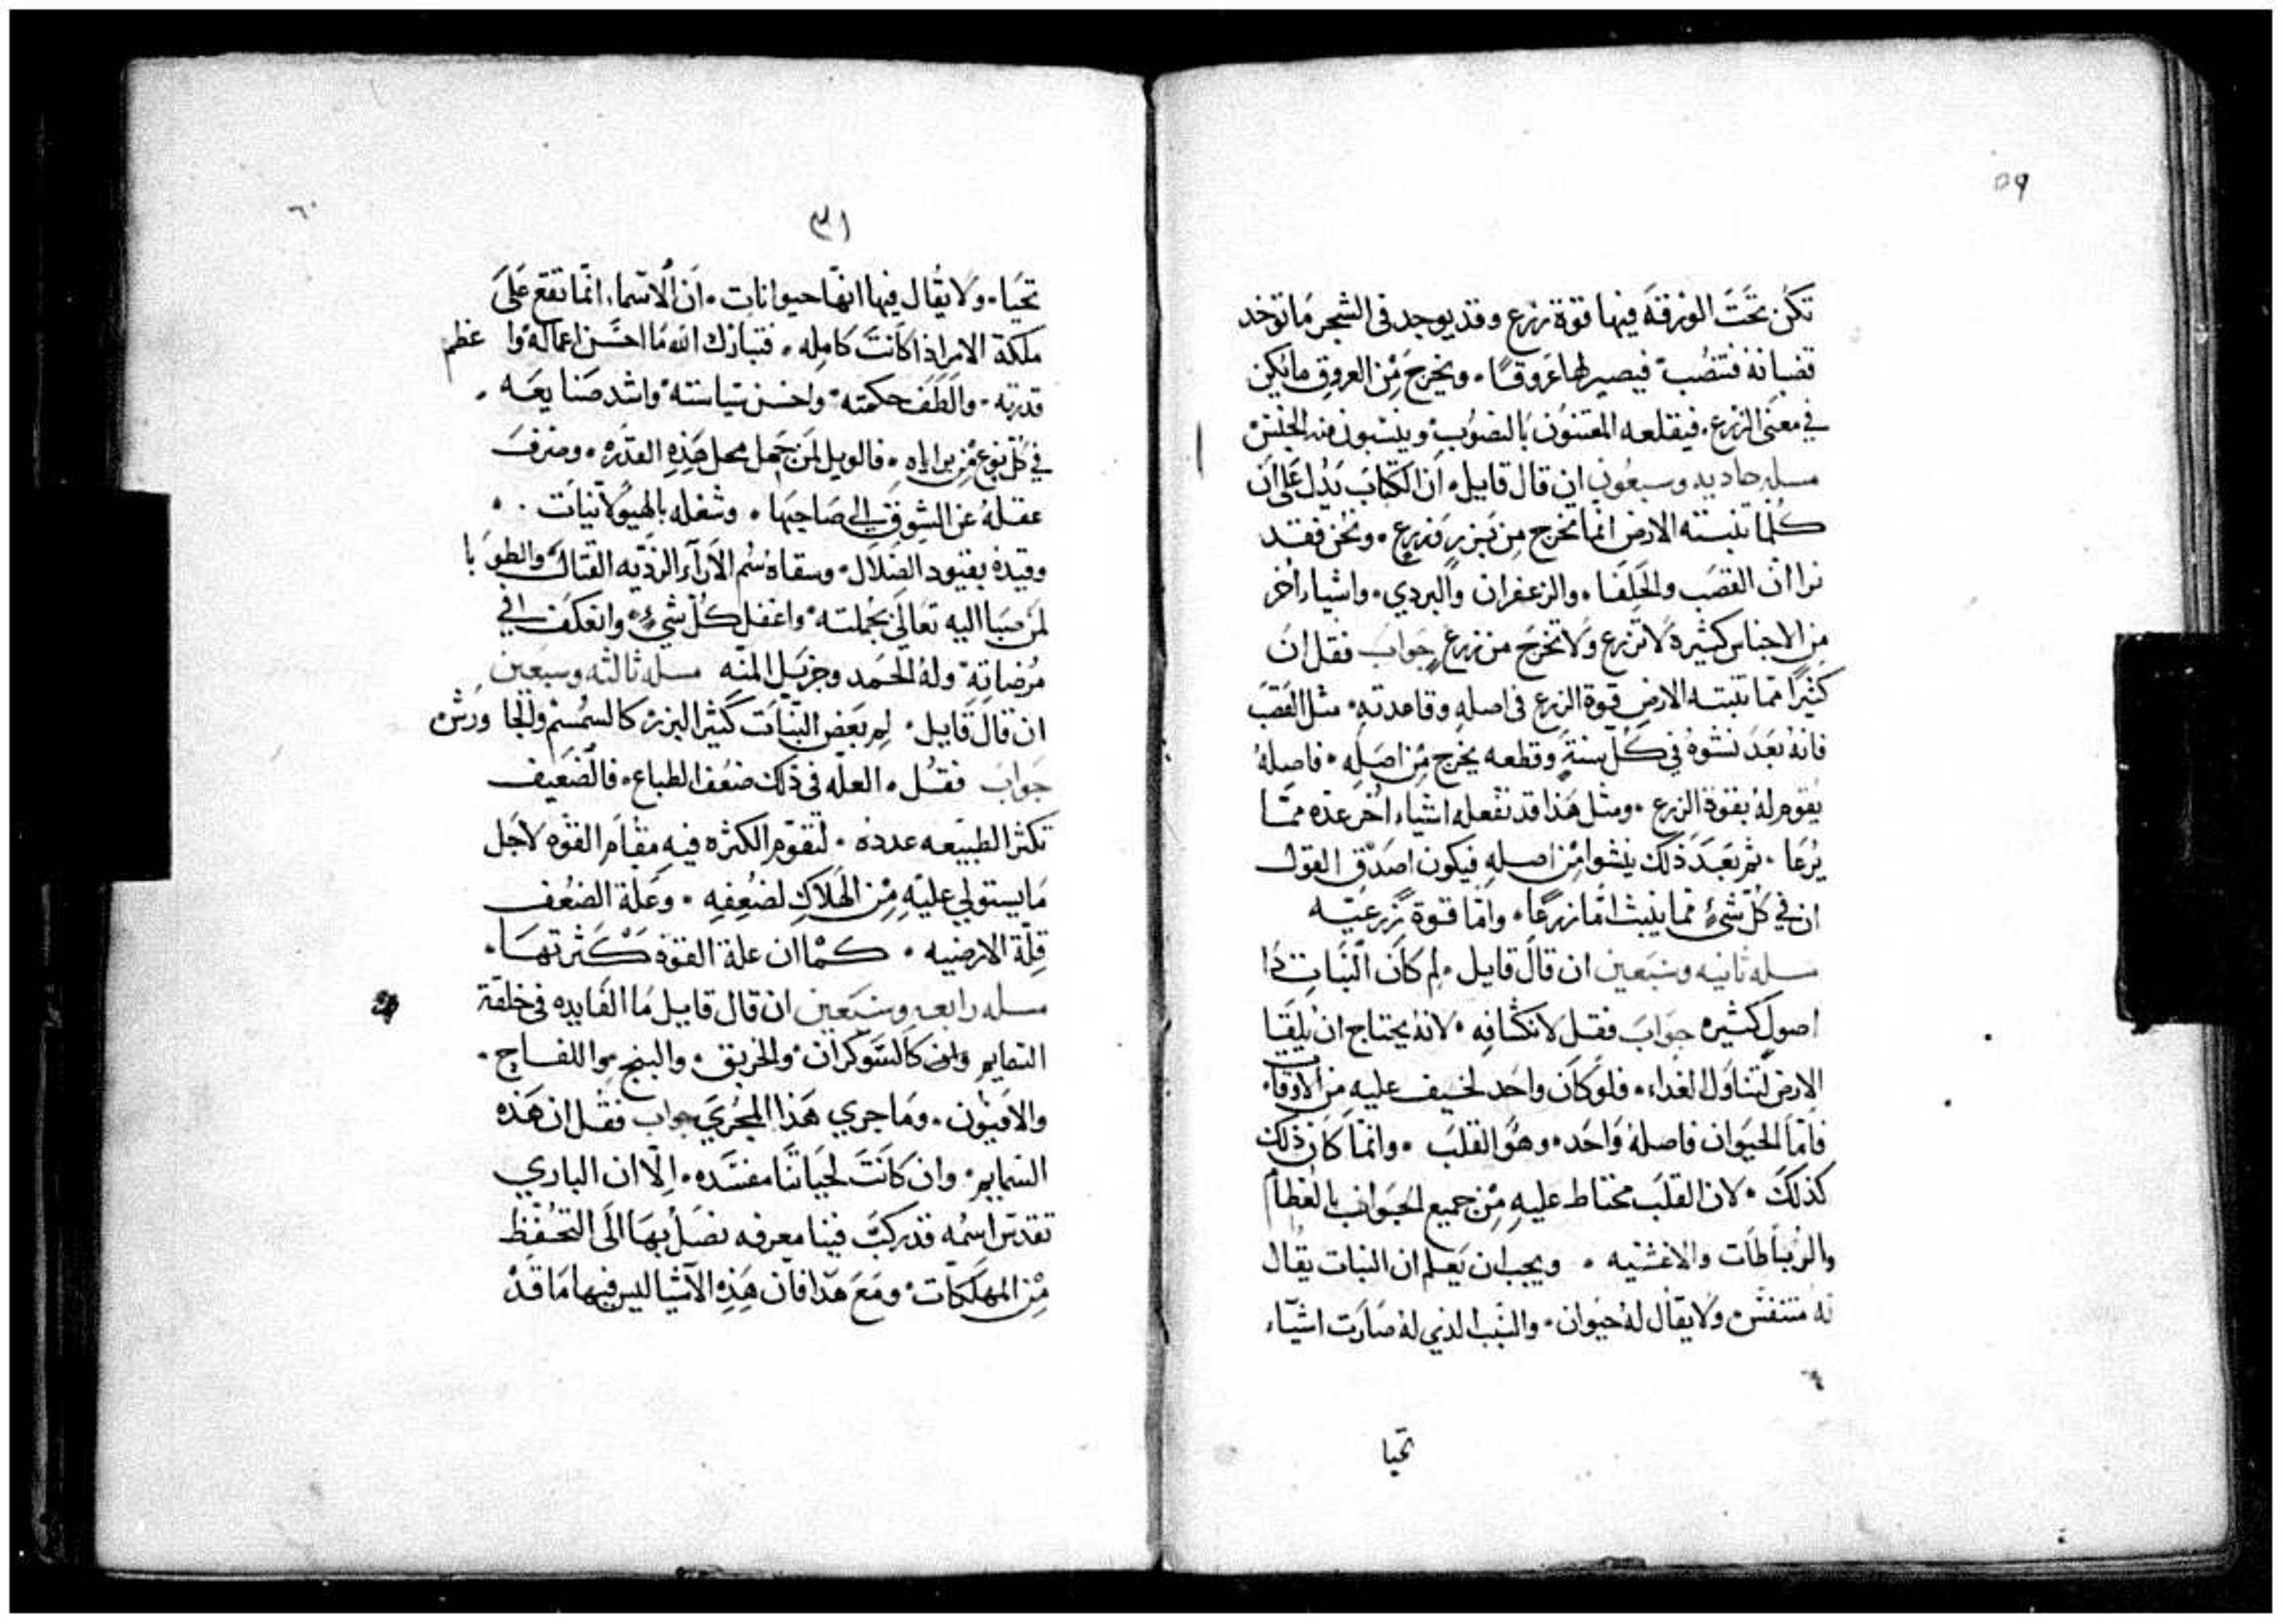 ٥٩
تكن تحت الورقة فيها قوة زرع وقد يوجد في الشجر ما توخد
قضبانه فتنصب فيصير لها عروقا. ويخرج من العروق ما يكن
في معنى الزرع. فيقلعه المعتنون بالنصوب وينسبون منه الجنس
مسله حاديه وسبعون ان قال قايل. ان الكتاب يدل على ان
كلما تنبته الارض انما تخرج من بزر وزرع. ونحن فقد
نرا ان القصب والحلفا. والزعفران والبردي. واشياء اخر
من الاجناس كثيرة لا تزرع ولا تخرج من زرع جواب فقل ان
كثيرا مما تنبته الارض قوة الزرع في اصله وقاعدته. مثل القصب
فانه بعد نشوه في كل سنة وقطعه يخرج من اصله. فاصله
يقوم له بقوة الزرع. ومثل هذا قد تفعله اشياء اخر عده مما
يرعا. ثم بعد ذلك ينشوا من اصله فيكون اصدق القول
ان في كل شيء مما ينبت اما زرعا. واما قوة زرعيه
مسله ثانيه وسبعين ان قال قايل. لم كان النبات ذا
اصول كثيره جواب فقل لانكشافه. لانه يحتاج ان يلقيا
الارض لتناول الغداء. فلو كان واحد لخيف عليه من الاوقات
فاما الحيوان فاصله واحد. وهو القلب. وانما كان ذلك
كذلك. لان القلب محتاط عليه من جميع الجوانب بالعظام
والرباطات والاغشيه. ويجب ان يعلم ان النبات يقال
له متنفس ولا يقال له حيوان. والسبب الذي له صارت اشياء
تحيا
٦٠
٣١
تحيا. ولا يقال فيها انها حيوانات. ان الاسماء انما تقع على
ملكة الامر اذا كانت كامله. فتبارك الله ما احسن اعماله وا عظم
قدرته. والطف حكمته. واحسن سياسته. واشد صنايعه.
في كل نوع من براياه. فالويل لمن جهل محل هذه القدره. وصرف
عقله عن الشوق الى صاحبها. وشغله بالهيولانيات.
وقيده بقيود الضلال. وسقاه سم الاراء الرديه القتاله والطوبا
لمن صبا اليه تعالى بجملته. واغفل كل شيء. وانعكف في
مرضاته. وله الحمد وجزيل المنه مسله ثالثه وسبعين
ان قال قايل. لم بعض النبات كثير البزر كالسمسم والجا ورش
جواب فقل. العله في ذلك ضعف الطباع. فالضعيف
تكثر الطبيعه عدده. لتقوم الكثره فيه مقام القوه لاجل
ما يستولي عليه من الهلاك لضعفه. وعلة الضعف
قلة الارضيه. كما ان علة القوة كثرتها.
مسله رابعه وسبعين ان قال قايل ما الفايده في خلقة
السمايم كالسوكران. والخربق. والبنج. واللفاح.
والافيون. وما جري هذا المجري جواب فقل ان هذه
السمايم. وان كانت لحياتنا مفسده. الا ان الباري
تقدس اسمه قد ركب فينا معرفه نصل بها الى التحفظ
من المهلكات. ومع هذا فان هذه الاشيا ليس فيها ما قد